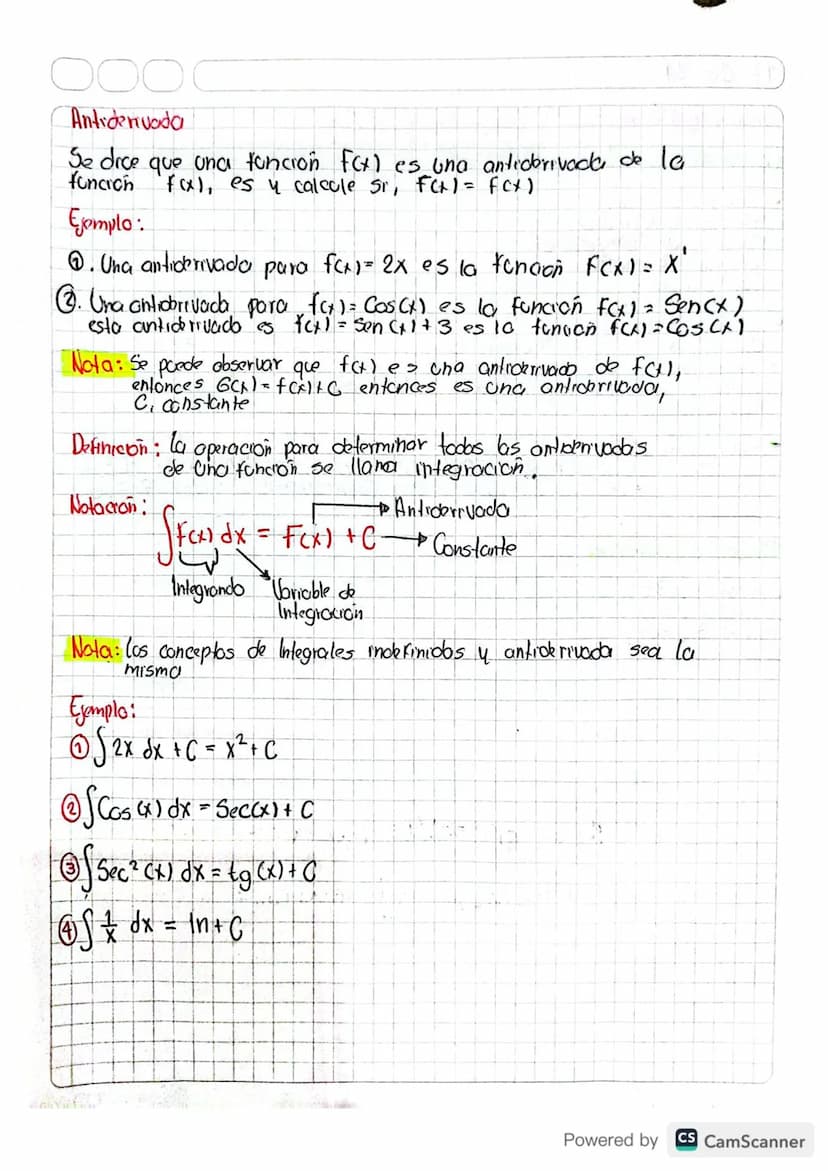 Antiderivada
Se dice que una función F(x) es una antiderivada de la
función f(x), es y calcule si, F(x) = f(x)
Ejemplo:
①. Una antiderivada para f(x) = 2x es la función F(x) = x'
②. Una antiderivada para f(x) = Cos(x) es la función f(x) = Sen(x)
esta antiderivada es f(x) = Sen(x) + 3 es la función f(x) = Cos(x)
Nota: Se puede observar que f(x) es una antiderivada de f(x),
entonces G(x) = f(x) + C entonces es una antiderivada,
C, constante
Definición: La operación para determinar todas las antiderivadas
de una función se llama integración.
Notación: → Antiderivada
∫f(x) dx = F(x) + C → Constante
Integrando Variable de
Integración
Nota: los conceptos de Integrales indefinidos y antiderivada sea la
mismo
Ejemplo:
① ∫2x dx + C = x² + C
② ∫Cos(x) dx = Sec(x) + C
③ ∫Sec²(x) dx = tg(x) + C
④ ∫1/x dx = ln + C
Powered by CS CamScanner